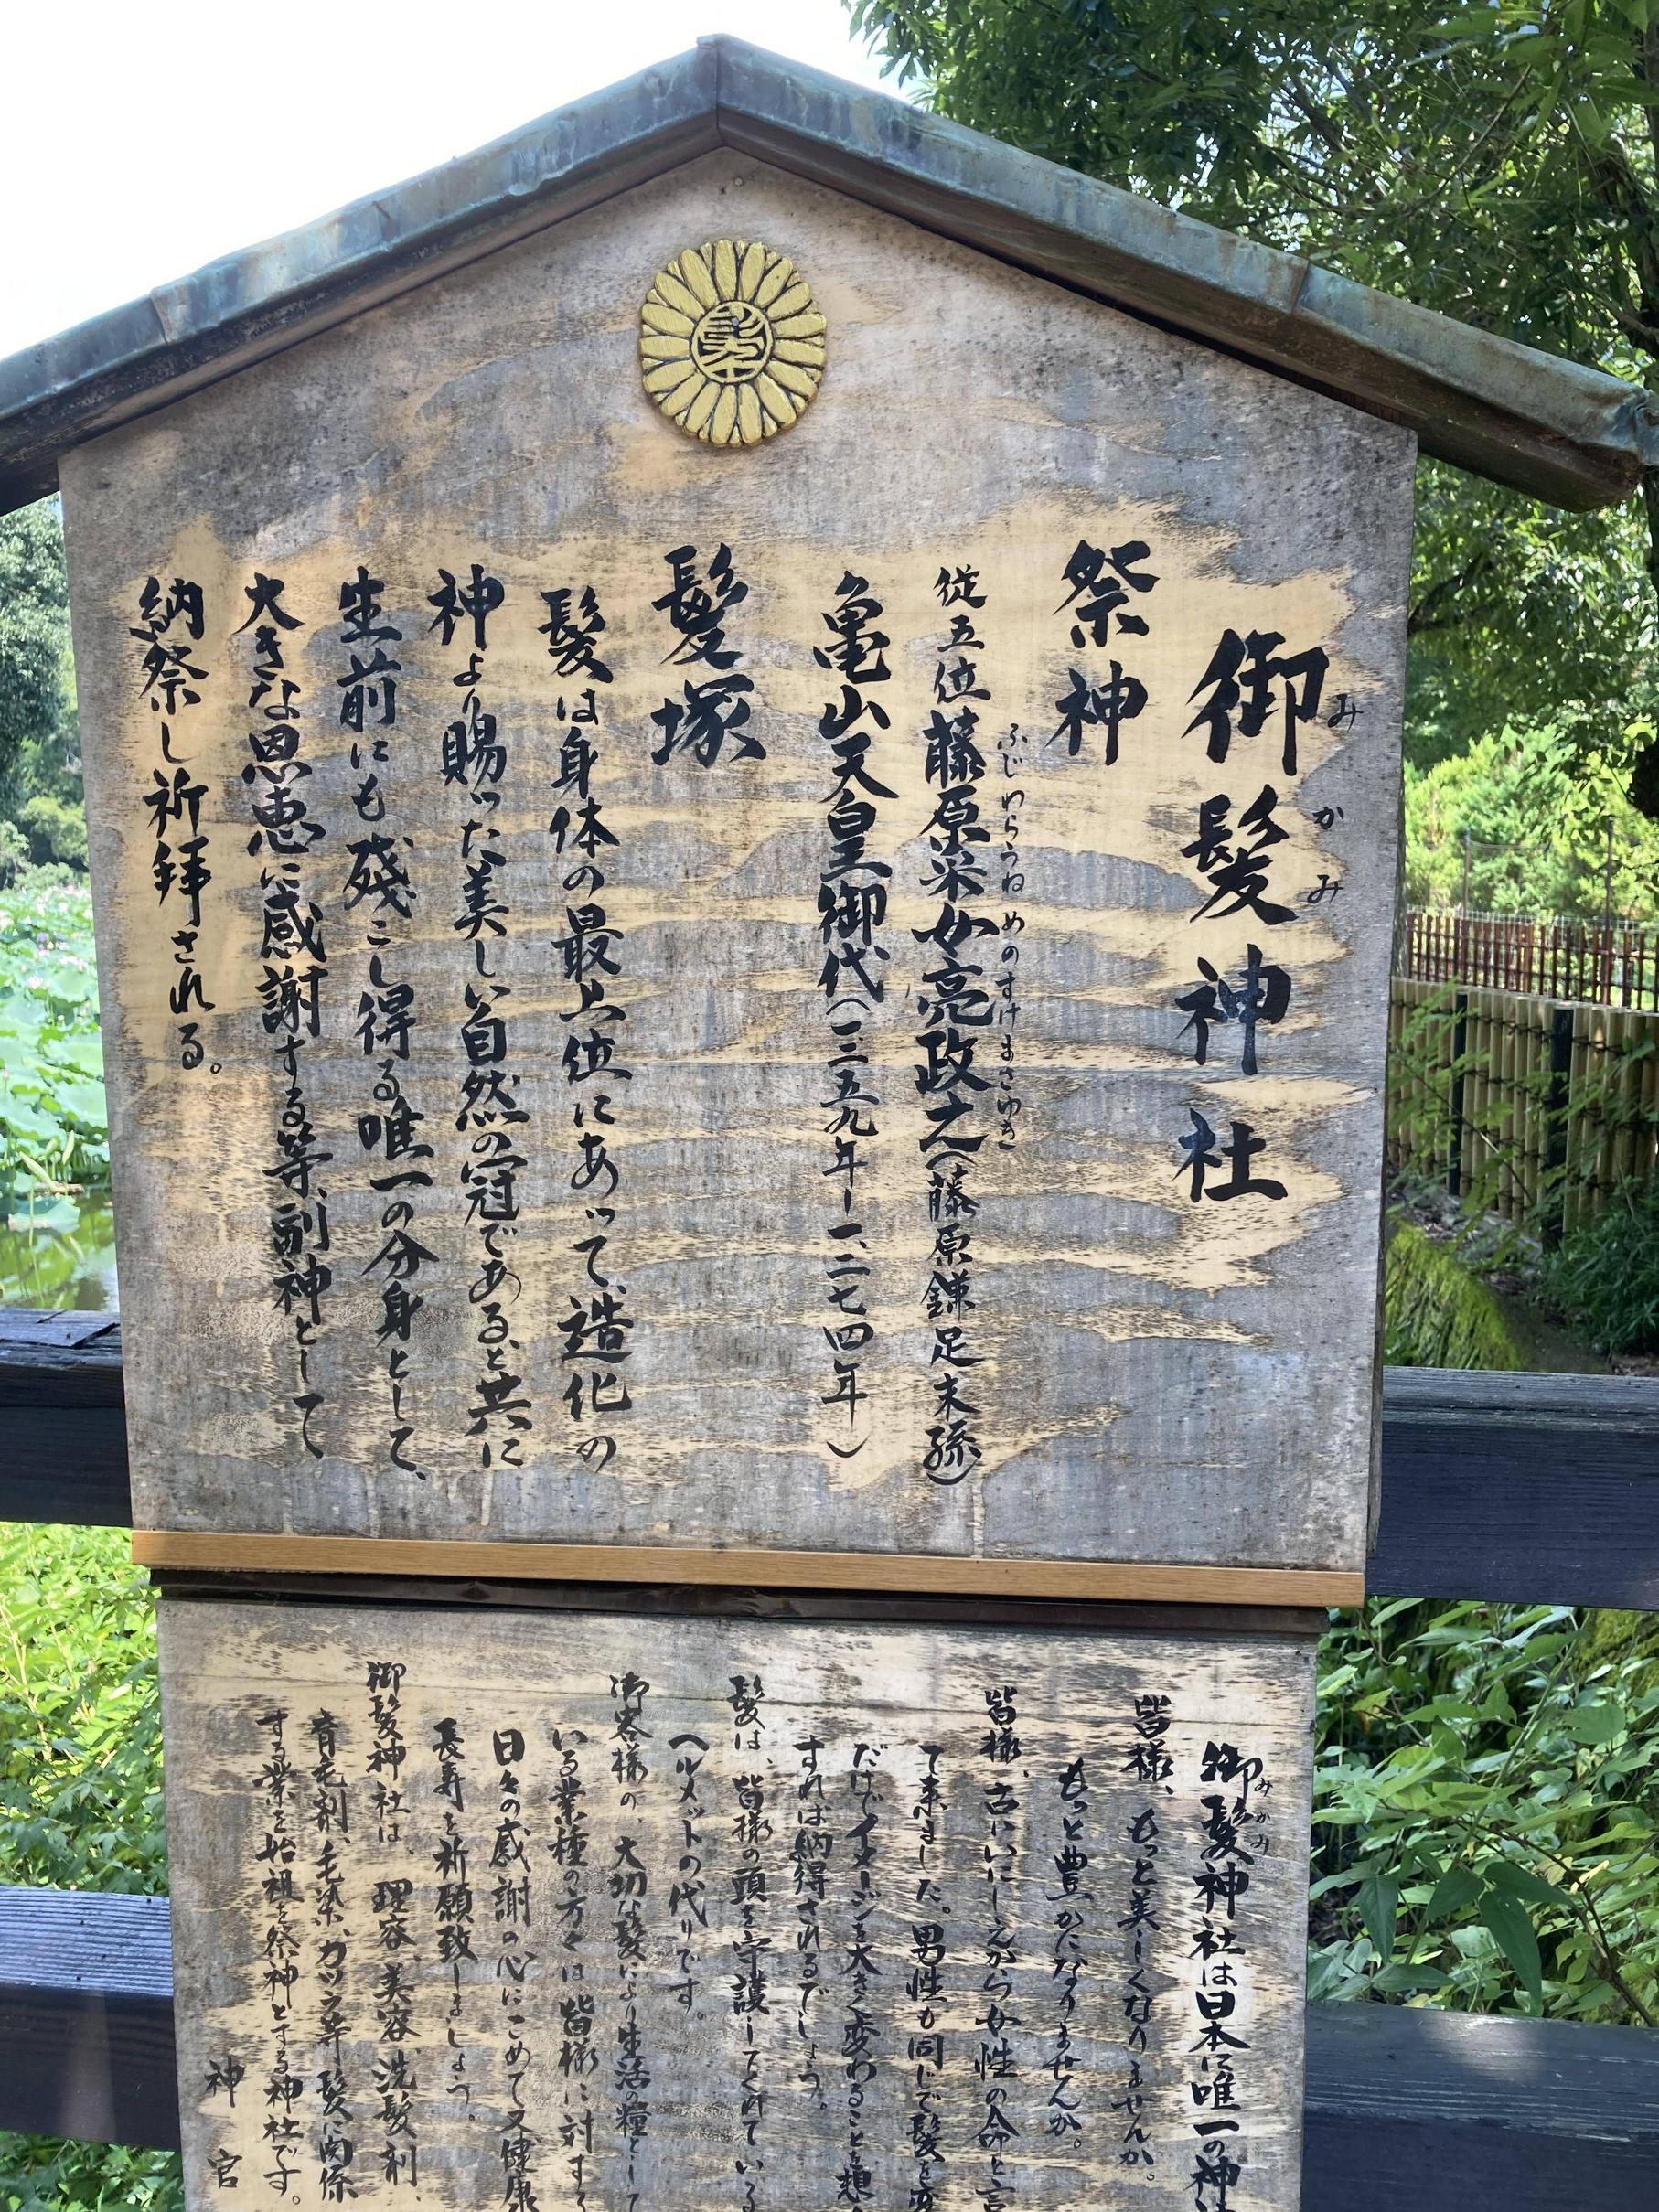 髪
御髪神社
み
か
み
祭神
従五位藤原采女亮政之(藤原鎌足末孫)
ふじわらうねめのすけまさゆき
亀山天皇御代(一二五九年ー一、二七四年)
髪塚
髪は身体の最上位にあって、造化の
神より賜った美しい自然の冠である、と共に
生前にも残こし得る唯一の分身として、
大きな恩恵に感謝する等、副神として
納祭し祈拝される。
御髪神社は日本に唯一の神社
みかみ
皆様、もっと美しくなりませんか。
もっと豊かになりませんか。
皆様、古いにしえから女性の命と言
て来ました。男性も同じで髪を変
だけでイメージを大きく変わることを想
すれば納得されるでしょう。
髪は、皆様の頭を守護してくれている
ヘルメットの代りです。
御客様の、大切な髪により生活の糧として
いる業種の方々は皆様に対する
日々の感謝の心にこめて又健康
長寿を祈願致しましょう。
御髪神社は、理容、美容、洗髪剤、
育毛剤、毛染、カツラ等髪に関係
する業を始祖を祭神とする神社です。
神官